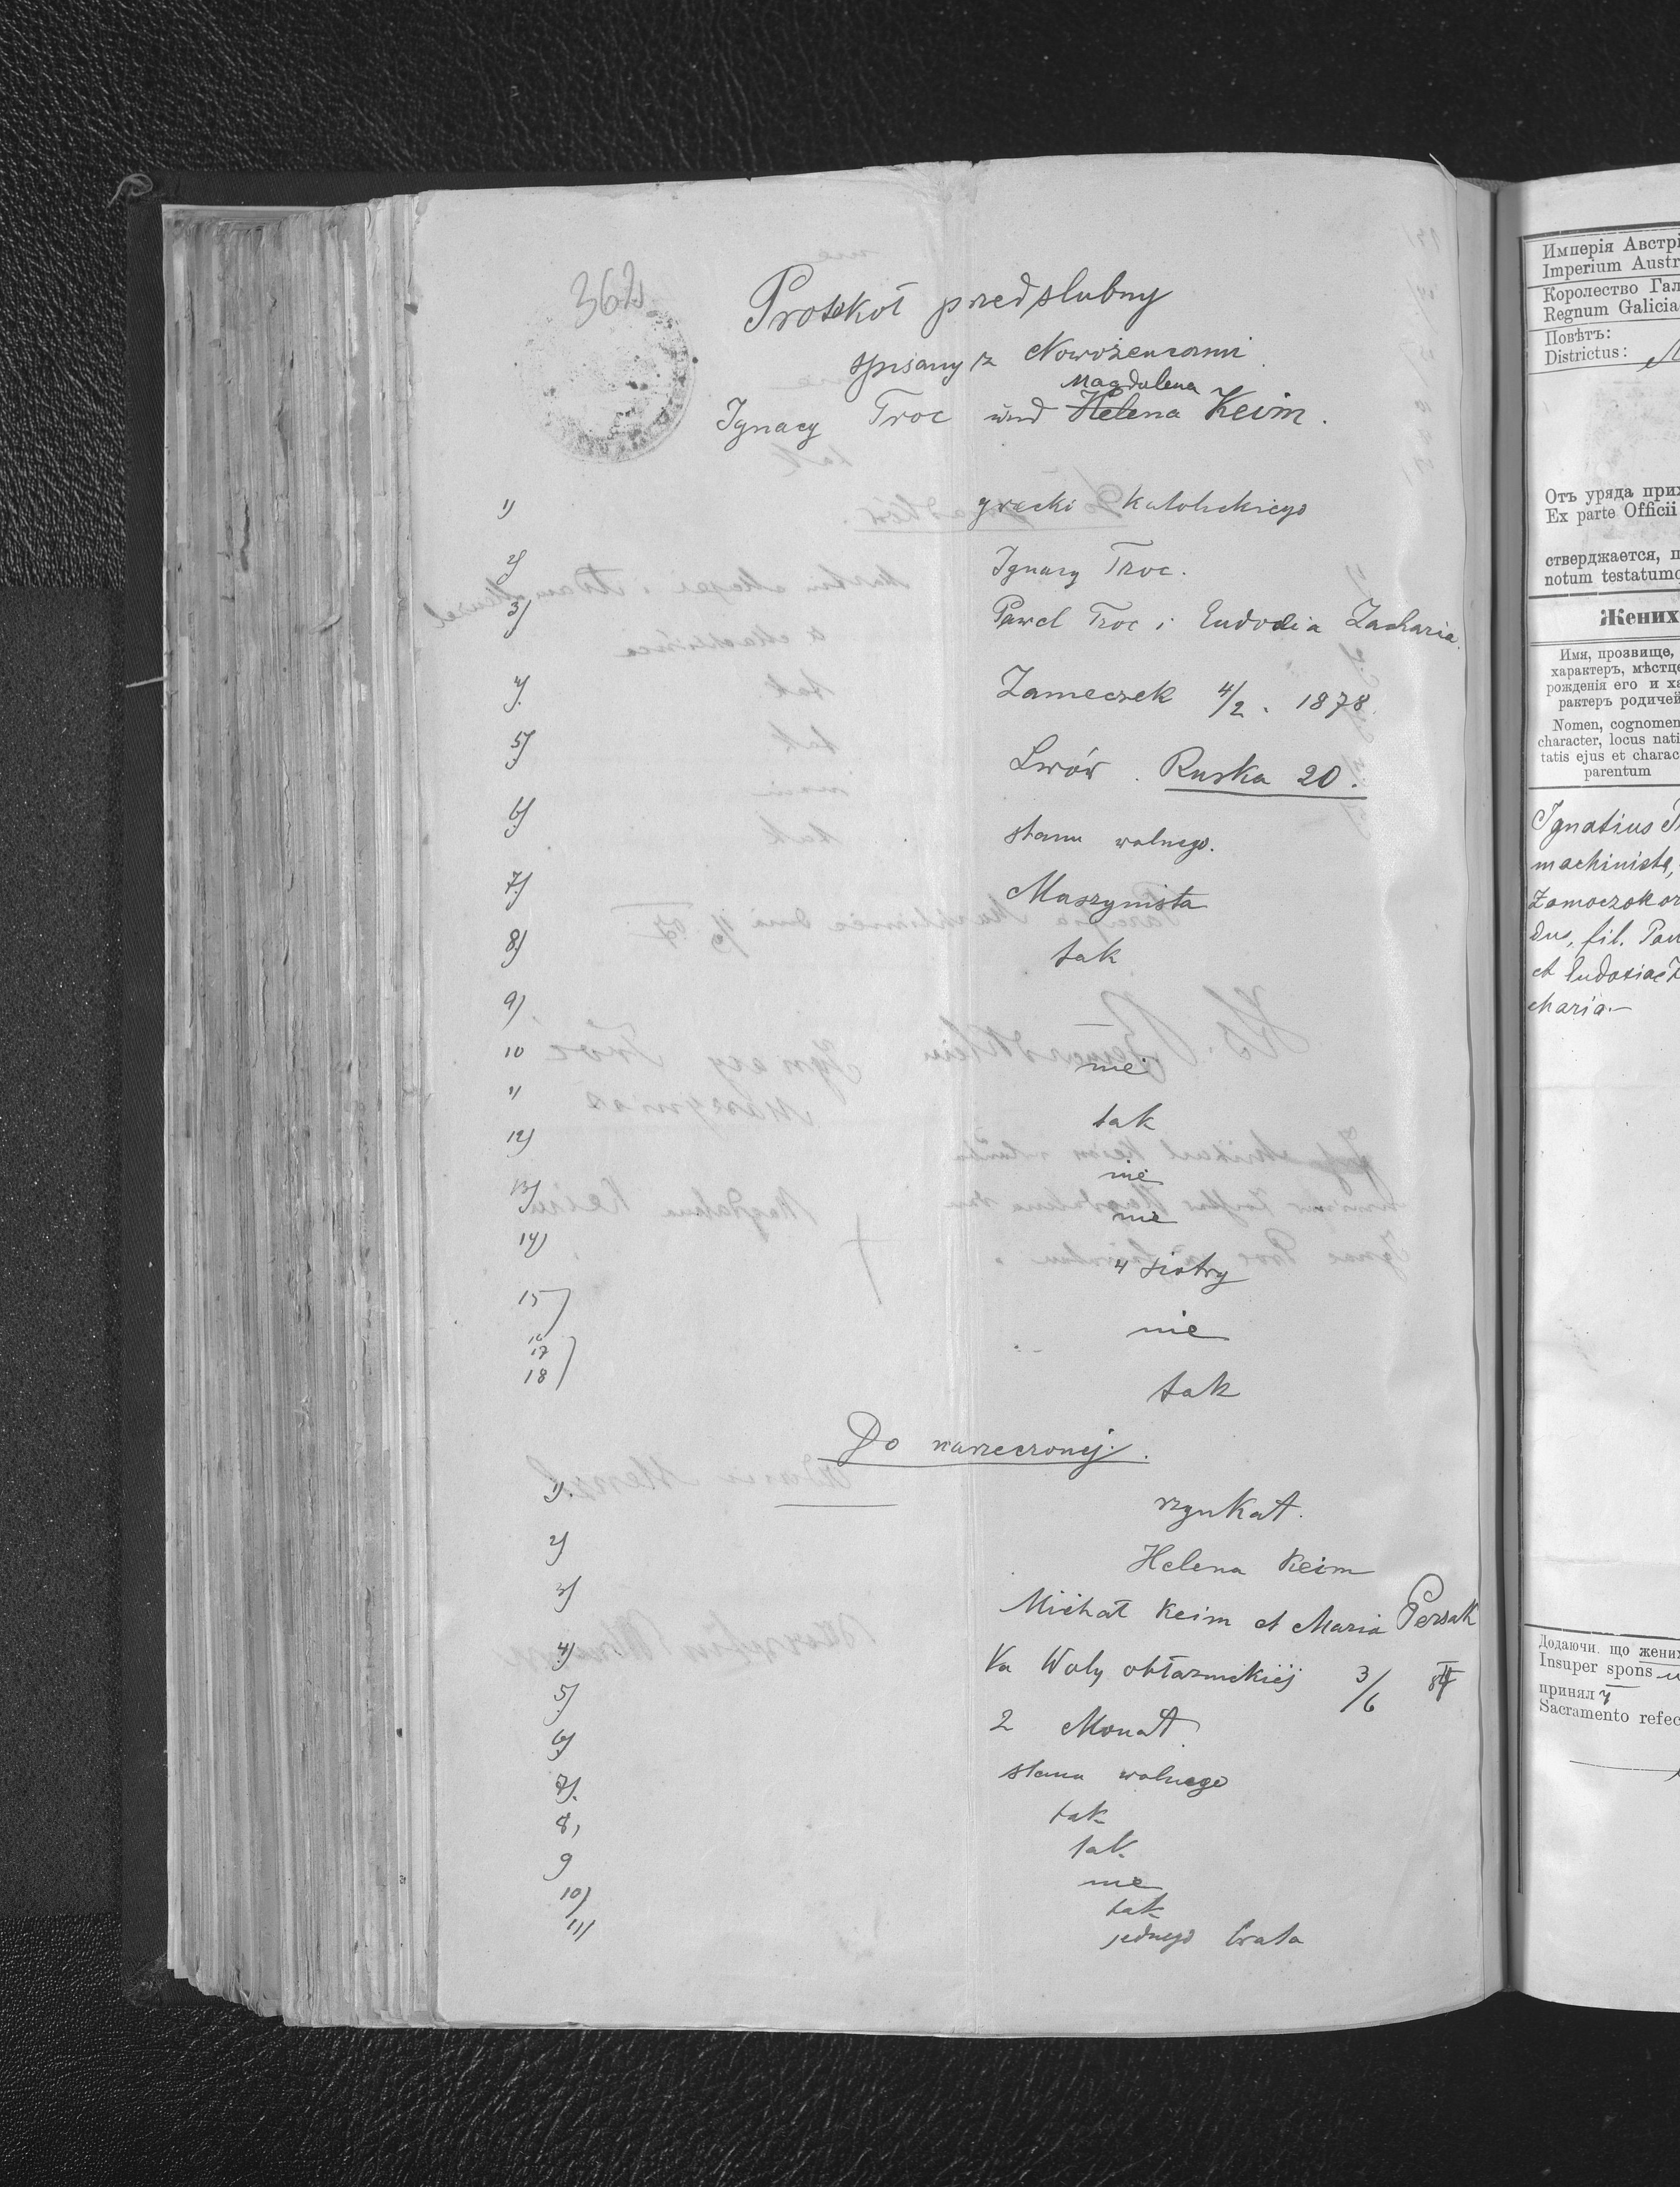 362
Protokół przedslubny
spisany z Nowożencami
Magdalena
Ignacy Troc und Helena Keim.
1) grecki katolickiego
2) Ignacy Troc.
3) Paweł Troc i Eudodia Zacharia.
4) Zameczek 4/2. 1878.
5) Lwów. Ruska 20.
6) stanu wolnego.
7) Maszynista
8) tak
9)
10 nie
11 tak
12) nie
13) nie
14) 4 siotry
15) nie
16
17
18) tak
Do narzeczonej.
1). rzym kat.
2) Helena Keim
3) Michał Keim et Maria Persak
4) Woly obłaznickiej 3/6
5) 2 Monat.
6) stanu wolnego
7). tak
8) tak
9 nie
10) tak
11) jednego brata
Имперія Австрі
Imperium Austr
Королество Гал
Regnum Galicia
Повѣтъ:
Districtus:
Отъ уряда прих
Ex parte Officii
стверджается, п
notum testatumq
Жених
Имя, прозвище,
характеръ, мѣстце
рожденія его и ха
рактеръ родичей
Nomen, cognomen
character, locus nati
tatis ejus et charac
parentum
Ignatius
machinista,
Zamoczok or
dus, fil. Pau
et Eudoxiae Z
charia.—
Додаючи, що жених
Insuper spons
принял
Sacramento refec